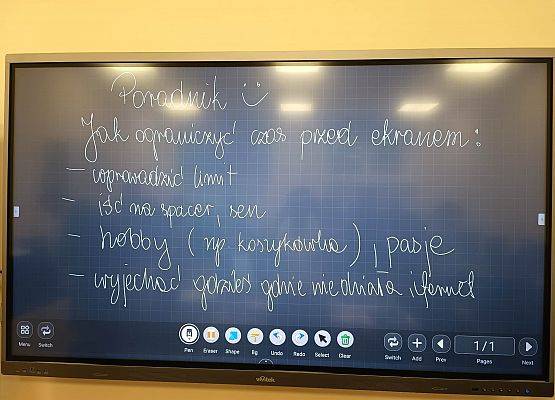 Poradnik :)
Jak ograniczyć czas przed ekranem:
- wprowadzić limit
- iść na spacer, sen
- hobby (np koszykówka), pasje
- wyjechać gdzieś gdzie nie działa internet
Menu Switch Pen Eraser Shape Bg Undo Redo Select Clear Switch Add Prev 1/1 Pages Next
vivitek